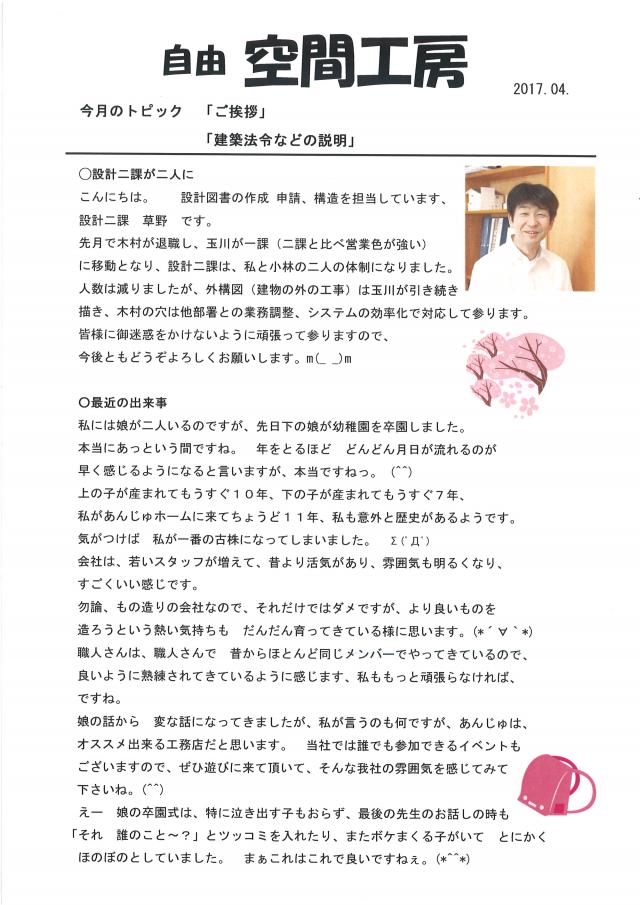 自由 空間工房
2017.04.
今月のトピック 「ご挨拶」
「建築法令などの説明」
○設計二課が二人に
こんにちは。 設計図書の作成 申請、構造を担当しています、
設計二課 草野 です。
先月で木村が退職し、玉川が一課（二課と比べ営業色が強い）
に移動となり、設計二課は、私と小林の二人の体制になりました。
人数は減りましたが、外構図（建物の外の工事）は玉川が引き続き
描き、木村の穴は他部署との業務調整、システムの効率化で対応して参ります。
皆様に御迷惑をかけないように頑張って参りますので、
今後ともどうぞよろしくお願いします。m(_ _)m
○最近の出来事
私には娘が二人いるのですが、先日下の娘が幼稚園を卒園しました。
本当にあっという間ですね。 年をとるほど どんどん月日が流れるのが
早く感じるようになると言いますが、本当ですねっ。（^^）
上の子が産まれてもうすぐ１０年、下の子が産まれてもうすぐ７年、
私があんじゅホームに来てちょうど１１年、私も意外と歴史があるようです。
気がつけば 私が一番の古株になってしまいました。 Σ(ﾟДﾟ)
会社は、若いスタッフが増えて、昔より活気があり、雰囲気も明るくなり、
すごくいい感じです。
勿論、もの造りの会社なので、それだけではダメですが、より良いものを
造ろうという熱い気持ちも だんだん育ってきている様に思います。(*´∀｀*)
職人さんは、職人さんで 昔からほとんど同じメンバーでやってきているので、
良いように熟練されてきているように感じます、私ももっと頑張らなければ、
ですね。
娘の話から 変な話になってきましたが、私が言うのも何ですが、あんじゅは、
オススメ出来る工務店だと思います。 当社では誰でも参加できるイベントも
ございますので、ぜひ遊びに来て頂いて、そんな我社の雰囲気を感じてみて
下さいね。(^^)
えー 娘の卒園式は、特に泣き出す子もおらず、最後の先生のお話しの時も
「それ 誰のこと～？」とツッコミを入れたり、またボケまくる子がいて とにかく
ほのぼのとしていました。 まぁこれはこれで良いですねぇ。(*^^*)